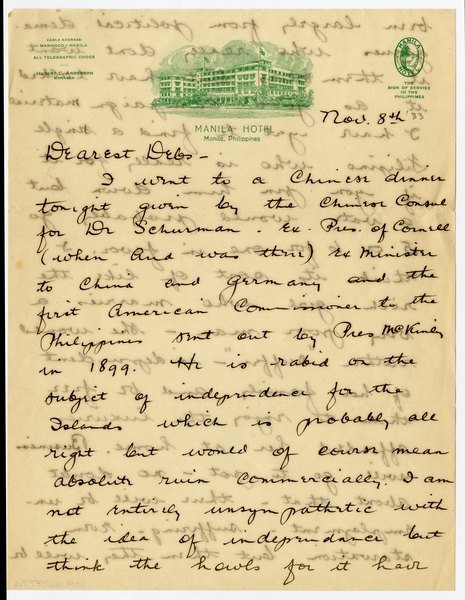 CABLE ADDRESS:
MANHOCO - MANILA
ALL TELEGRAPHIC CODES
ANDERSON
MANAGER
MANILA HOTEL
THE
SIGN OF SERVICE
IN THE
PHILIPPINES
MANILA HOTEL
Manila, Philippines
Nov. 8th '33
Dearest Debs -
I went to a Chinese dinner
tonight given by the Chinese Consul
for Dr Schurman - Ex. Pres. of Cornell
(when And was their) Ex Minister
to China and Germany and the
first American Commissioner to the
Philippines sent out by Pres McKinley
in 1899. He is rabid on the
subject of independence for the
Islands which is probably all
right but would of course mean
absolute ruin commercially. I am
not entirely unsympathetic with
the idea of independence but
think the howls for it have